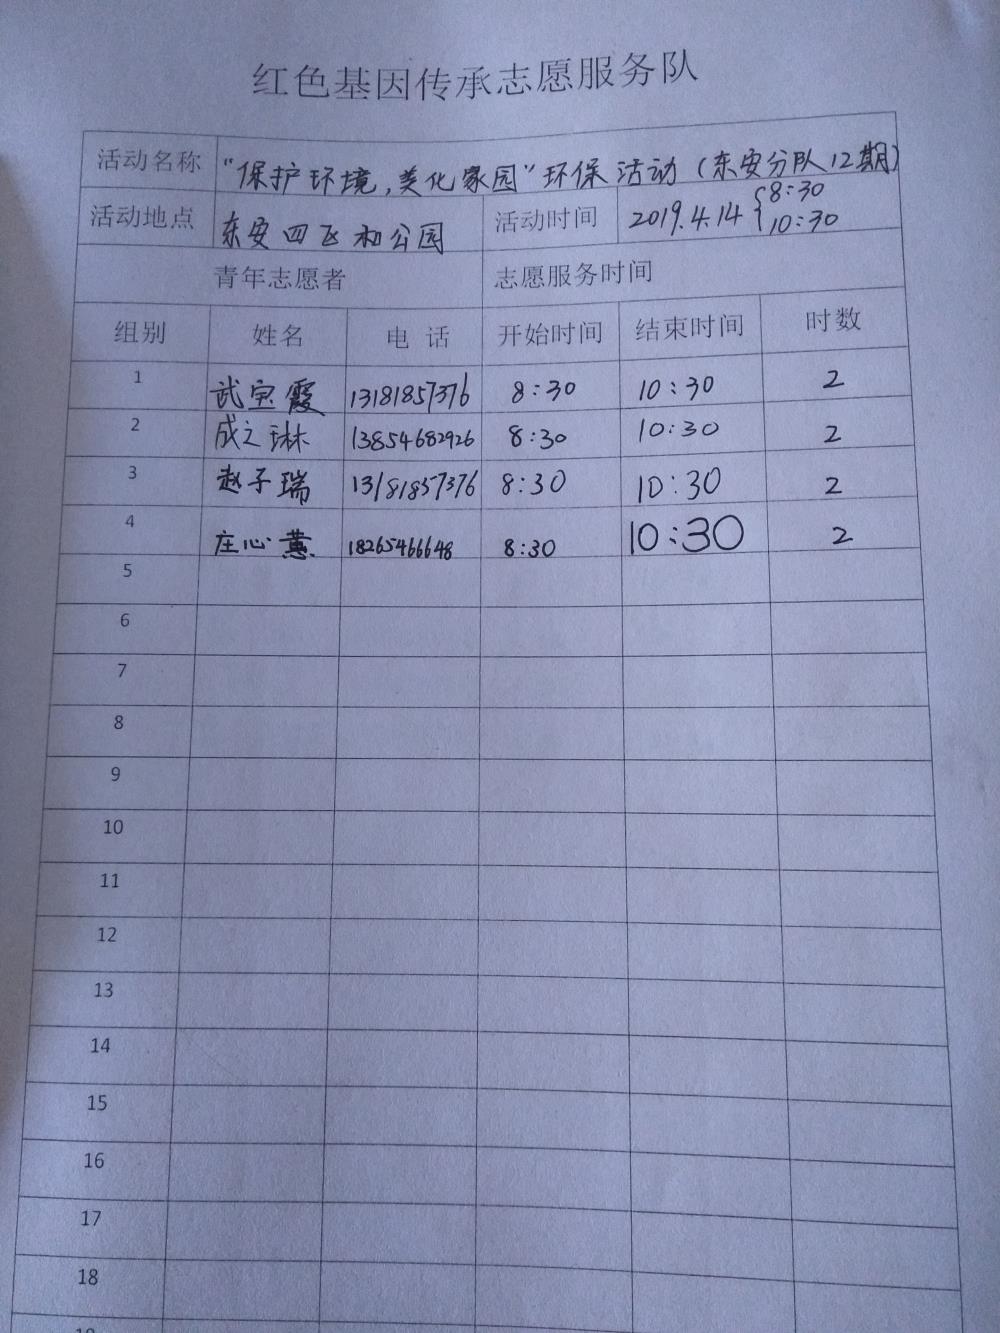 红色基因传承志愿服务队
活动名称 "保护环境,美化家园"环保活动(东安分队12期)
活动地点 东安四区和公园 活动时间 2019.4.14 {8:30 10:30
青年志愿者 志愿服务时间
组别 姓名 电话 开始时间 结束时间 时数
1 武宝霞 13181857376 8:30 10:30 2
2 成之琳 13854682926 8:30 10:30 2
3 赵子瑞 13181857376 8:30 10:30 2
4 庄心蕙 18265466648 8:30 10:30 2
5
6
7
8
9
10
11
12
13
14
15
16
17
18